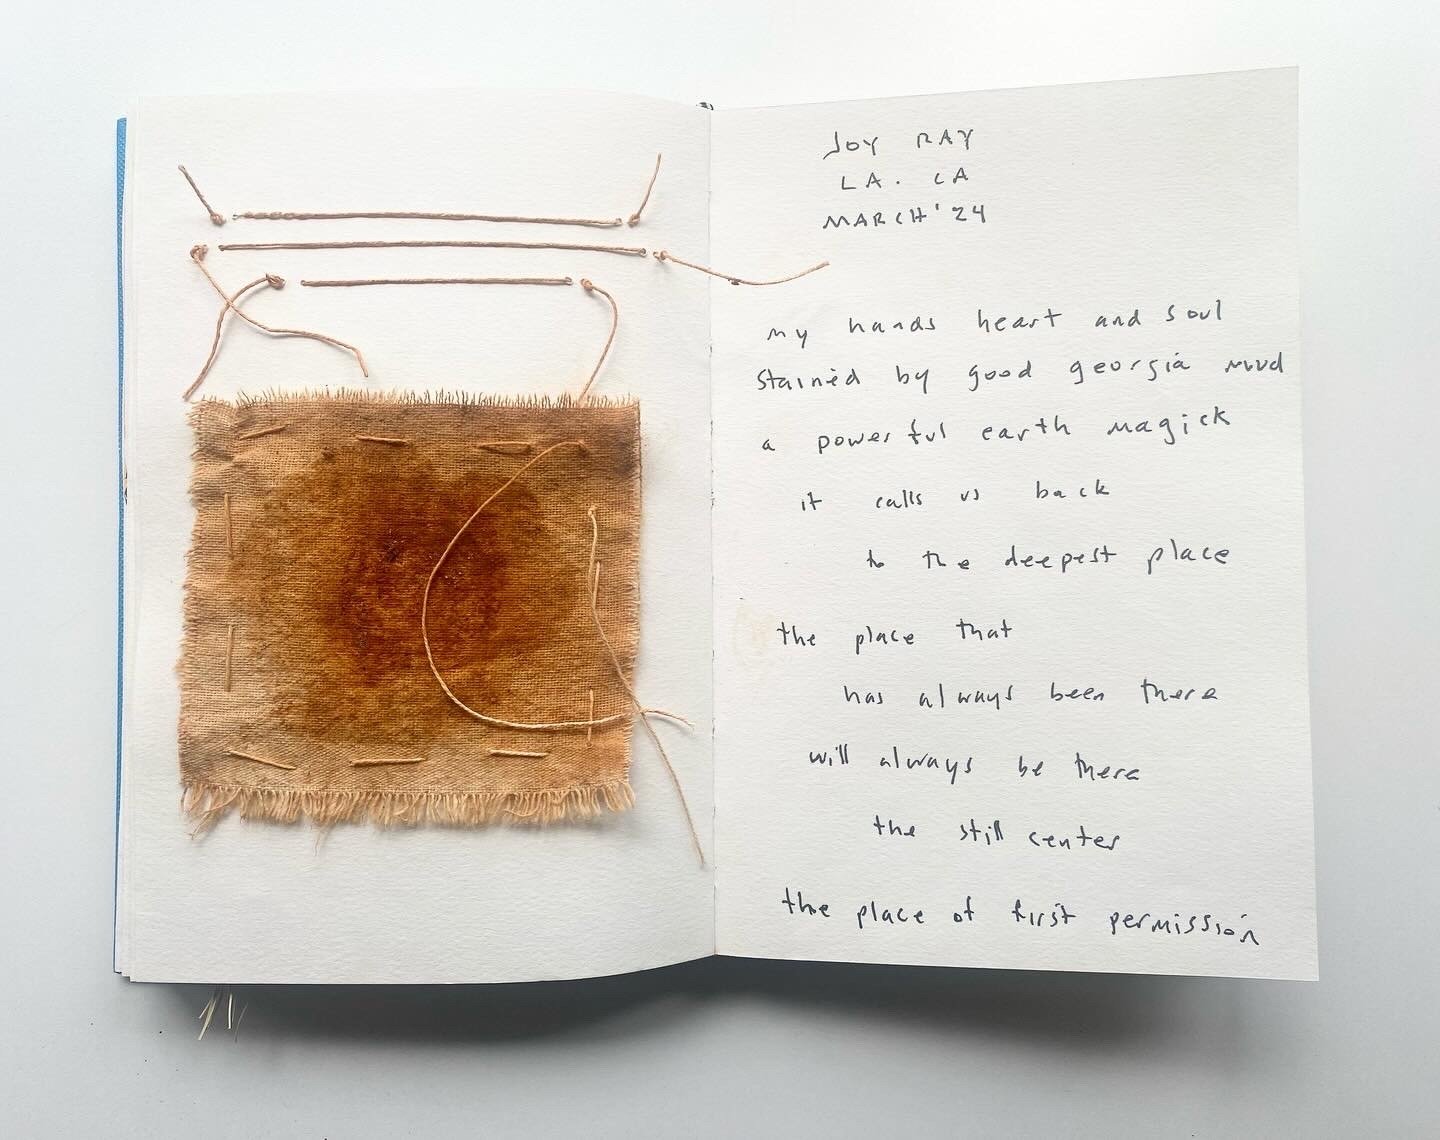 JOY RAY
LA. CA
MARCH '24
my hands heart and soul
stained by good georgia mud
a powerful earth magick
it calls us back
to the deepest place
the place that
has always been there
will always be there
the still center
the place of first permission